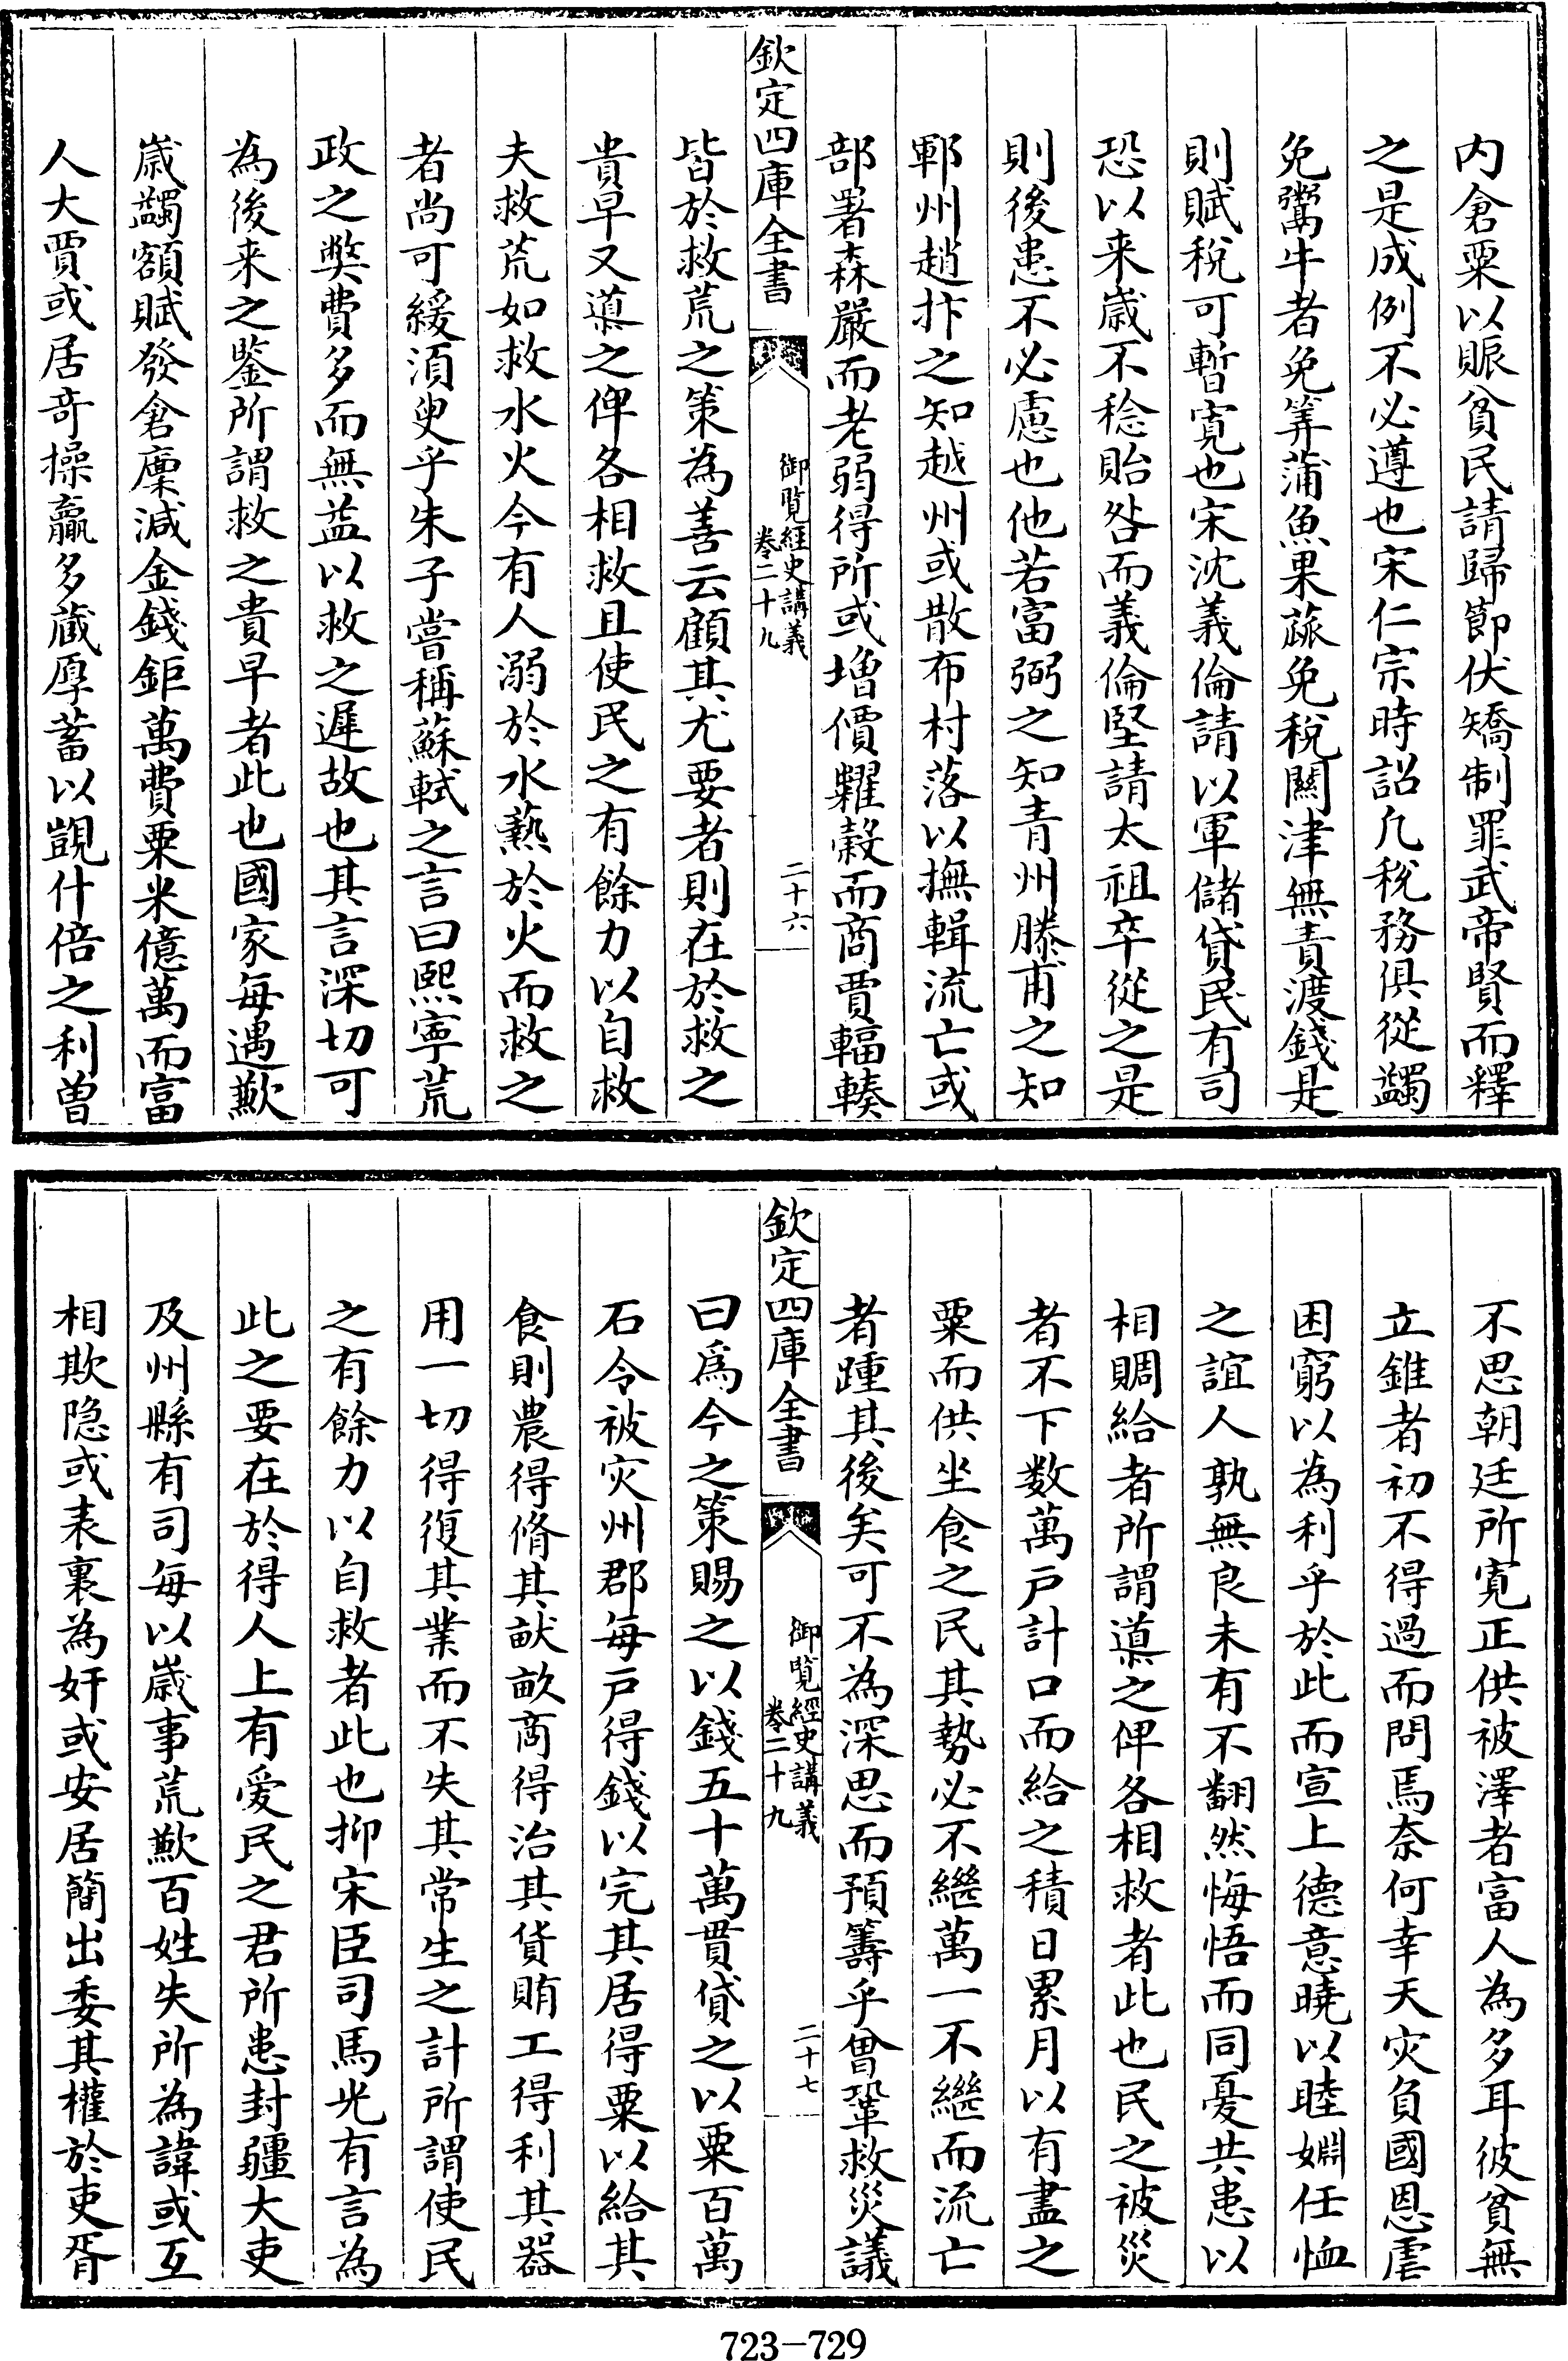 内倉粟以賑貧民請歸節伏矯制罪武帝賢而釋
之是成例不必遵也宋仁宗時詔凡稅務俱從蠲
免鬻牛者免筭蒲魚果蓏免稅關津無責渡錢是
則賦稅可暫寛也宋沈義倫請以軍儲貸民有司
恐以来歳不稔貽咎而義倫堅請太祖卒從之是
則後患不必慮也他若富弼之知青州滕甫之知
鄆州趙抃之知越州或散布村落以撫輯流亡或
部署森嚴而老弱得所或増價糶榖而商賈輻輳
欽定四庫全書
御覧經史講義
卷二十九
二十六
皆於救荒之策為善云顧其尤要者則在於救之
貴早又導之俾各相救且使民之有餘力以自救
夫救荒如救水火今有人溺於水爇於火而救之
者尚可緩須臾乎朱子嘗稱蘇軾之言曰熙寧荒
政之弊費多而無益以救之遲故也其言深切可
為後来之鍳所謂救之貴早者此也國家每遇歉
歳蠲額賦發倉廩減金錢鉅萬費粟米億萬而富
人大賈或居奇操贏多蔵厚蓄以覬什倍之利曽
不思朝廷所寛正供被澤者富人為多耳彼貧無
立錐者初不得過而問焉奈何幸天灾負國恩虐
困窮以為利乎於此而宣上德意曉以睦婣任恤
之誼人孰無良未有不翻然悔悟而同憂共患以
相賙給者所謂導之俾各相救者此也民之被災
者不下数萬戸計口而給之積日累月以有盡之
粟而供坐食之民其勢必不繼萬一不繼而流亡
者踵其後矣可不為深思而預籌乎曾鞏救災議
欽定四庫全書
御覧經史講義
卷二十九
二十七
曰爲今之策賜之以錢五十萬貫貸之以粟百萬
石令被灾州郡每戸得錢以完其居得粟以給其
食則農得脩其畎畝商得治其貨賄工得利其器
用一切得復其業而不失其常生之計所謂使民
之有餘力以自救者此也抑宋臣司馬光有言為
此之要在於得人上有愛民之君所患封疆大吏
及州縣有司每以歳事荒歉百姓失所為諱或互
相欺隐或表裏為奸或安居簡出委其權於吏胥
723-729